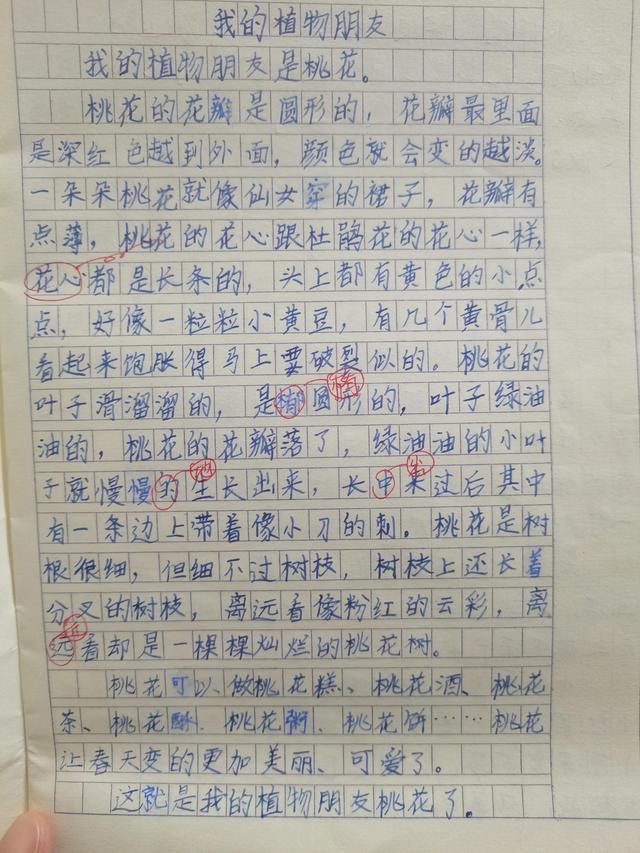 我的植物朋友
我的植物朋友是桃花。
桃花的花瓣是圆形的，花瓣最里面
是深红色越到外面，颜色就会变的越淡。
一朵朵桃花就像仙女穿的裙子，花瓣有
点薄，桃花的花心跟杜鹃花的花心一样，
花心都是长条的，头上都有黄色的小点
点，好像一粒粒小黄豆，有几个黄骨儿
看起来饱胀得马上要破裂似的。桃花的
椭
叶子滑溜溜的，是圆形的，叶子绿油
油的，桃花的花瓣落了，绿油油的小叶
地 出
子就慢慢的生长出来，长申来过后其中
有一条边上带着像小刀的刺。桃花是树
根很细，但细不过树枝，树枝上还长着
分叉的树枝，离远看像粉红的云彩，离
近
远看却是一棵棵灿烂的桃花树。
桃花可以做桃花糕、桃花酒、桃花
茶、桃花酥、桃花粥、桃花饼……桃花
让春天变的更加美丽、可爱了。
这就是我的植物朋友桃花了。